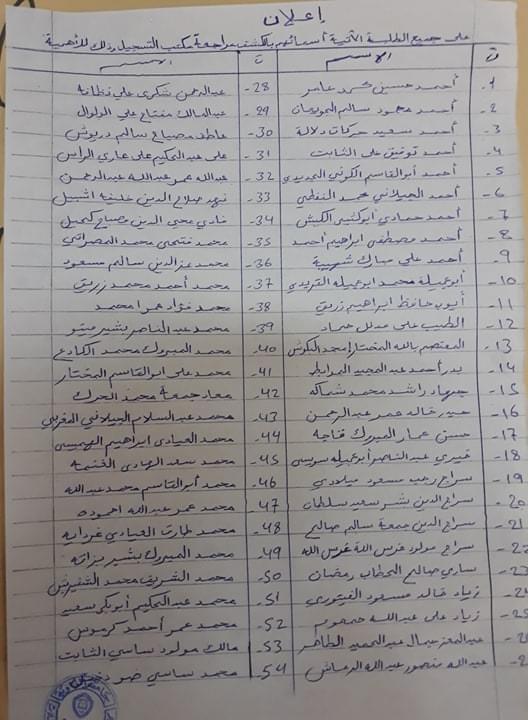 إعلان
على جميع الطلبة الآتية أسمائهم بالكشف مراجعة مكتب التسجيل وذلك للأهمية
ت الاسم ت الاسم
1- أحمد حسين محمد عامر 28- عبدالرحمن شكري علي
2- أحمد محمود سالم 29- عبدالمالك مفتاح علي الولوال
3- أحمد سعيد حركات دلالة 30- عاطف مصباح سالم درويش
4- أحمد توفيق علي الشابت 31- علي عبدالحكيم علي عاري الراس
5- أحمد أبوالقاسم الكوني 32- عبدالله عمر عبدالله عبدالرحمن
6- أحمد الجيلاني محمد النفطي 33- فهد صلاح الدين خليفة اشبيل
7- أحمد حمادي أبوكثير الكبش 34- فادي محي الدين مصباح كحيل
8- أحمد مصطفى ابراهيم احمد 35- محمد فتحي محمد المصراتي
9- أحمد علي مبارك شهيبة 36- محمد عزالدين سالم مسعود
10- أبوعجيلة محمد ابوعجيلة القريدي 37- محمد أحمد محمد زريق
11- أيوب حافظ ابراهيم زريق 38- محمد فؤاد عمر امحمد
12- الطيب علي حماد 39- محمد عبدالناصر بشير
13- المعتصم بالله المختار امحمد الكوش 40- محمد المبروك محمد
14- بدر أحمد عبدالمجيد المرابط 41- محمد علي ابوالقاسم المختار
15- جهاد راشد محمد شماكه 42- معاد جمعة محمد الحرك
16- حيدر خالد عمر عبدالرحمن 43- محمد عبدالسلام الجيلاني المغربي
17- حسن عمار المبروك قناجه 44- محمد العيادي ابراهيم الهميسي
18- خيري عبدالناصر أبوعجيله سويسي 45- محمد سعد الهادي
19- سراج رجب مسعود ميلادي 46- محمد أبوالقاسم محمد عبدالله
20- سراج الدين بشير سعيد سلطان 47- محمد عمر عبدالله احموده
21- سراج الدين جمعة سالم صالح 48- محمد طارق العيادي
22- سراج مولود غرس الله غرس الله 49- محمد المبروك بشير
23- ساري صالح الحطاب رمضان 50- محمد الشريف محمد
زياد خالد مسعود الفيتوري 51- محمد عبدالحكيم أبوبكر سعيد
زياد علي عبدالله حمعوم 52- محمد عمر أحمد كريوس
عبدالمعز جمال عبدالحميد الطاهر 53- مالك مولود ساسي الشابت
عبدالله منصور عبدالله الرماش 54- محمد ساسي ضو